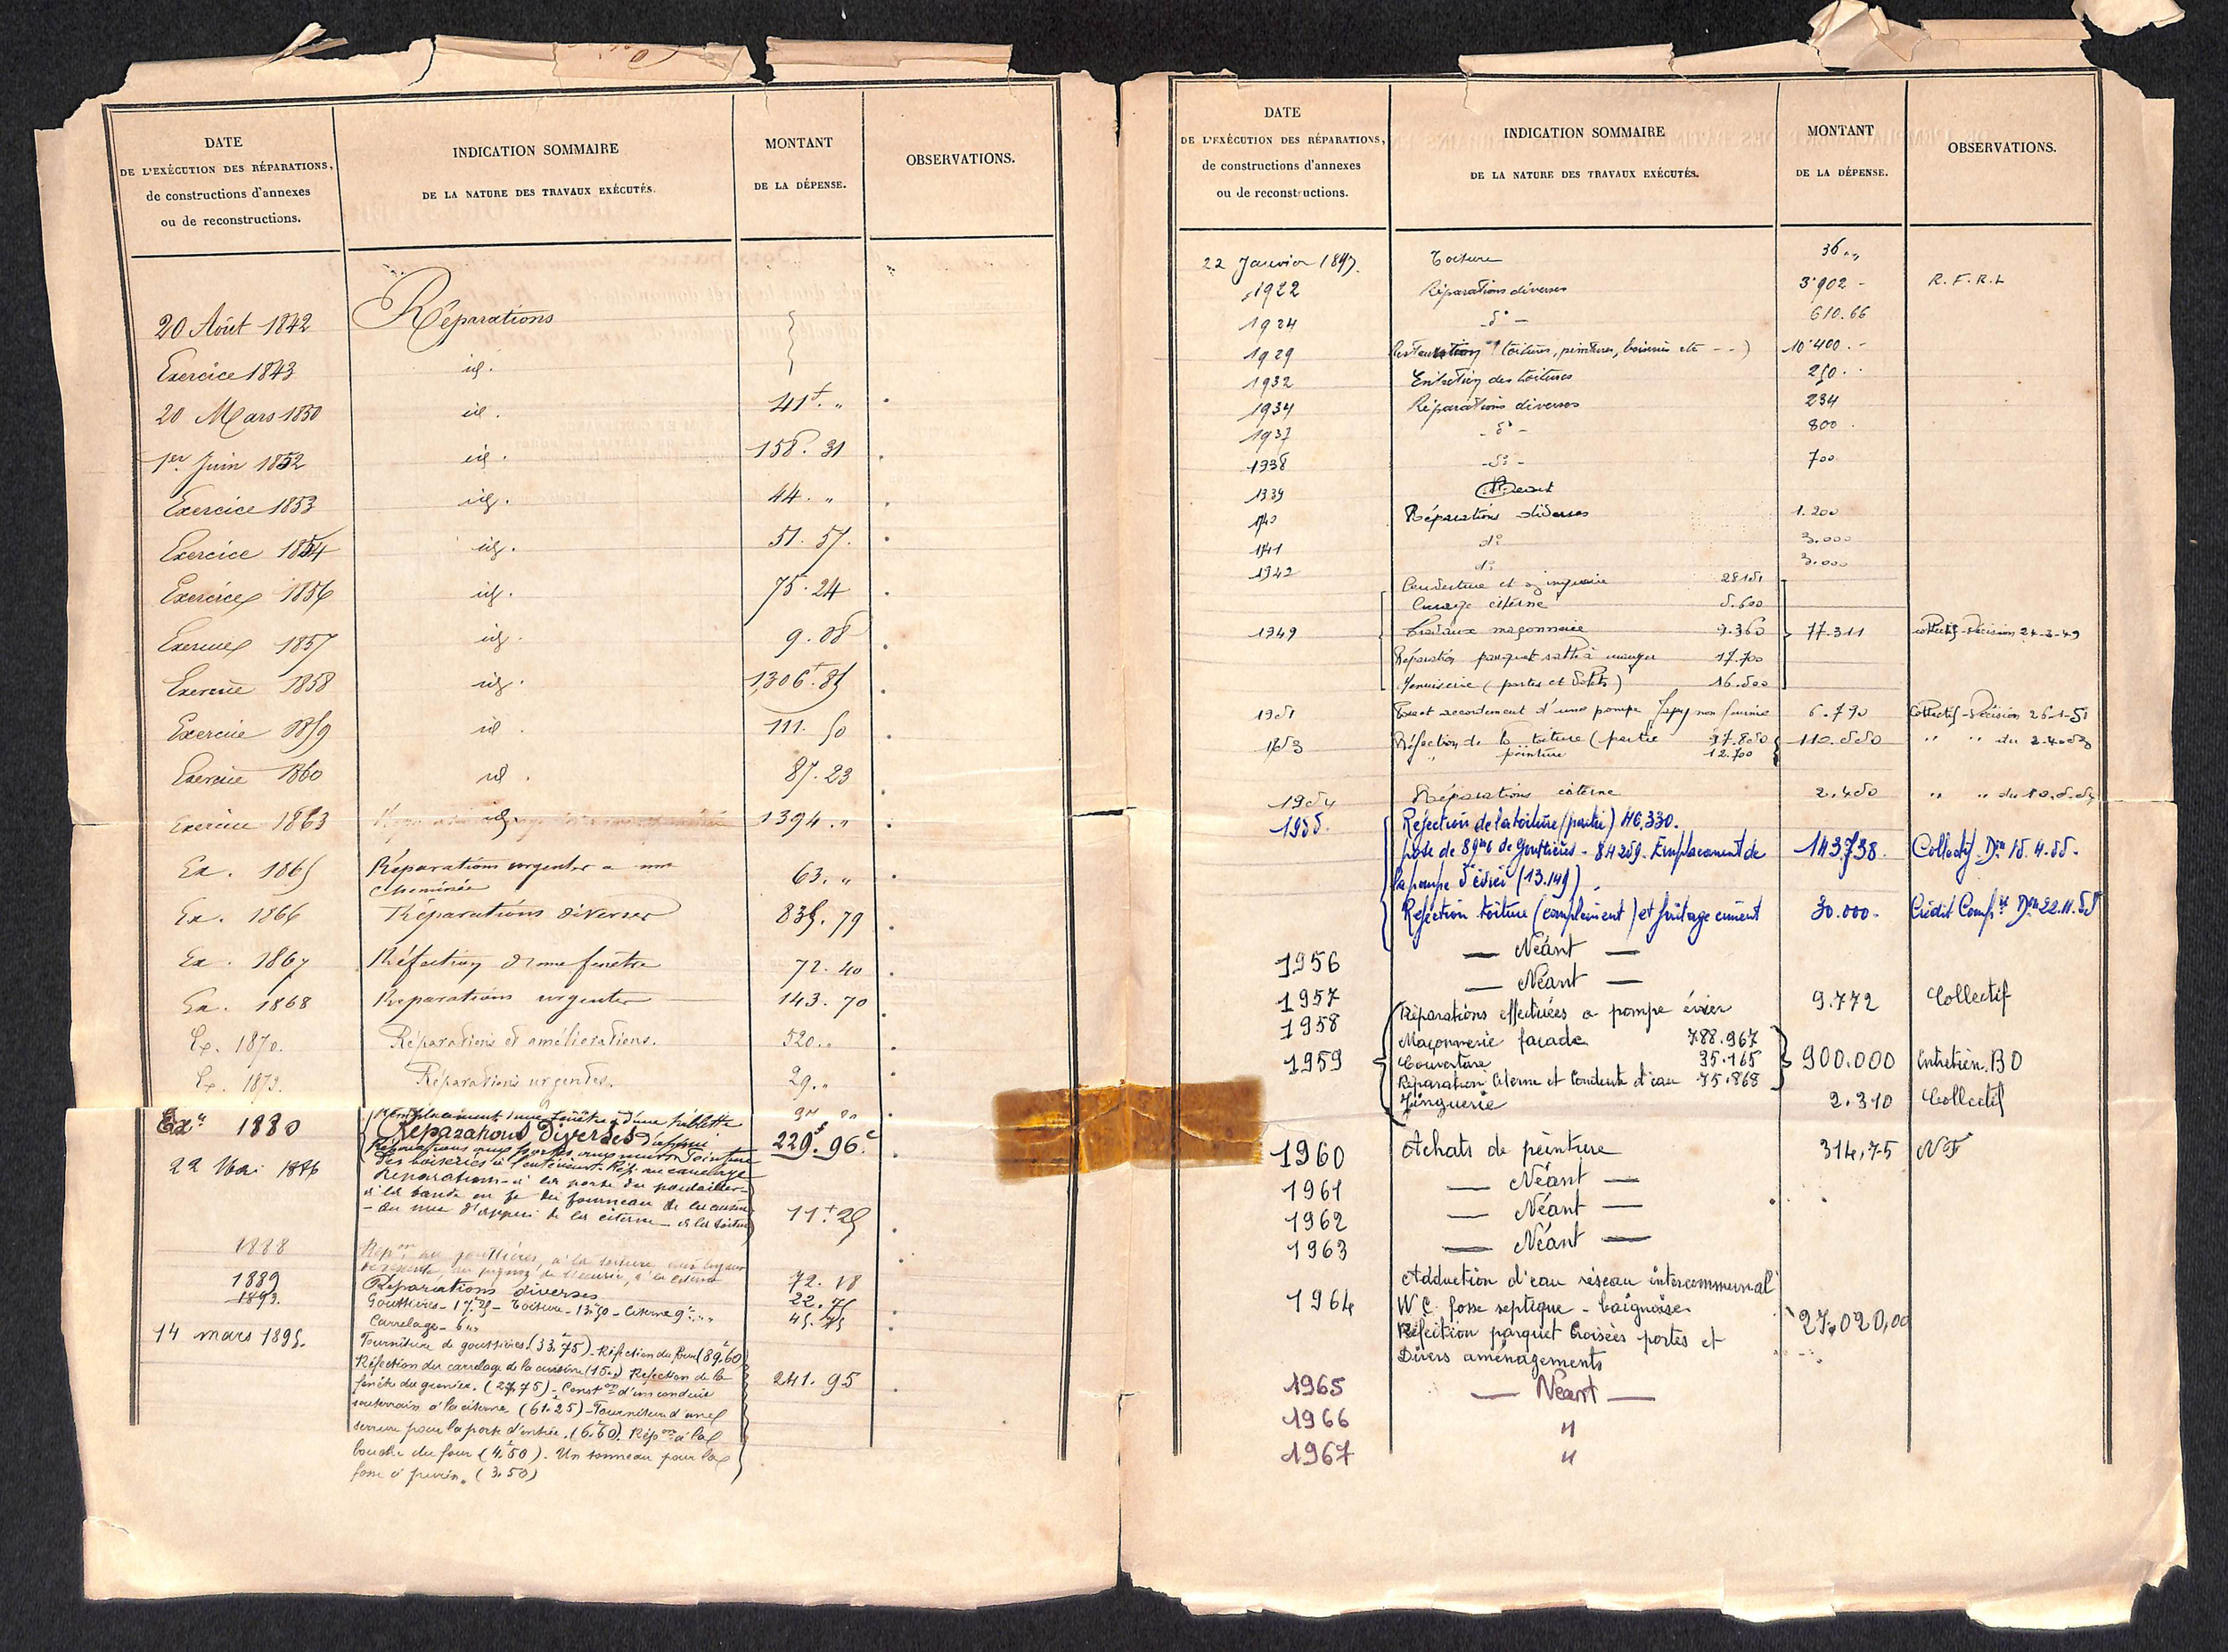 DATE
DE L'EXÉCUTION DES RÉPARATIONS,
de constructions d'annexes
ou de reconstructions.
INDICATION SOMMAIRE
DE LA NATURE DES TRAVAUX EXÉCUTÉS.
MONTANT
DE LA DÉPENSE.
OBSERVATIONS.
20 Août 1842 Réparations
Exercice 1843 id.
20 Mars 1850 id. 41f. "
1er. Juin 1852 id. 158. 31
Exercice 1853 id. 44. "
Exercice 1854 id. 51. 57.
Exercice 1856 id. 75. 24
Exercice 1857 id. 9. 08
Exercice 1858 id. 1,306. 85
Exercice 1859 id. 111. 50
Exercice 1860 id. 87. 23
Exercice 1863 id. 1394. "
Ex. 1865 Réparations urgentes a une
cheminée 63. "
Ex. 1866 Réparations diverses 835. 79
Ex. 1867 Réfection d'une fenêtre 72. 40
Ex. 1868 Réparations urgentes 143. 70
Ex. 1870. Réparations et améliorations. 520. "
Ex. 1873. Réparations urgentes. 29. "
Remplacement d'une fenêtre & d'une tablette
Exce 1880 Réparations Diverses d'appui 229f. 96c
Réparations aux portes, aux murs. Peinture
22 Mai 1886 des boiseries à l'intérieur. Rép. au carrelage
Réparations à la porte du poulailler
à la bande en fer du fourneau de la cuisine
- au mur d'appui de la citerne - à la toiture 11f. 25
1888 Repon. au gouttières, à la toiture
1889 Réparations diverses 72. 18
1893. Gouttières - 17f.25 - Toiture - 13f.50 - Citerne 9f. " 22. 75
Carrelage - 6 " 45. 75
14 mars 1895. Fourniture de gouttières (33f.75) - Réfection du four (89f.60)
Réfection du carrelage de la cuisine (15 ") Réfection de la
fenêtre du grenier. (27f.75) - Conston d'un conduit 241. 95
souterrain à la citerne (61f.25) - Fourniture d'une
serrure pour la porte d'entrée. (6f.60). Répon à la
bouche du four (4f.50). Un tonneau pour la
fosse à purin. (3f.50)
DATE
DE L'EXÉCUTION DES RÉPARATIONS,
de constructions d'annexes
ou de reconstructions.
INDICATION SOMMAIRE
DE LA NATURE DES TRAVAUX EXÉCUTÉS.
MONTANT
DE LA DÉPENSE.
OBSERVATIONS.
22 Janvier 1897. Toiture 36. "
1922 Réparations diverses 3.902 - R. F. R. L
1924 - d° - 610.66
1929 Restauration (toitures, peintures, boiseries etc - - ) 10.400. -
1932 Entretien des toitures 250. -
1934 Réparations diverses 234
1937 - d° - 800
1938 - d° - 700
1939 Néant
1940 Réparations diverses 1.200
1941 d° 3.000
1942 d° 3.000
Couverture et zinguerie 28151
Curage citerne 5.600
1949 Travaux maçonnerie 9.360 77.311 collectif - Décision 24-3-49
Réparation parquet salle à manger 17.700
Menuiserie (portes et volets) 16.500
1951 Pose et raccordement d'une pompe Japy non fournie 6.790 Collectif - Décision 26-1-51
1953 Réfection de la toiture (partie 97.850 110.550 " " du 2.4.53
" peinture 12.700
1954 Réparations citerne 2.450 " " du
1955. Réfection de la toiture (partie) 46.330.
pose de 89m6 de Gouttières - 84259. Emplacement de 143.738. Collectif. Don 15.4.55.
la pompe d'évier (13.149).
Réfection toiture (complément) et ciment 30.000. Crédit Compre Don 22.11.55
1956 — Néant —
1957 — Néant —
1958 Réparations effectuées à pompe évier 9.772 Collectif
Maçonnerie façade 788.967
1959 Couverture 35.165 900.000 Entretien. BO
Réparation Citerne et Conduite d'eau 75.868
Zinguerie 2.310 Collectif
1960 Achats de peinture 314,75 NF
1961 — Néant —
1962 — Néant —
1963 — Néant —
Adduction d'eau réseau intercommunal
1964 W C. fosse septique - baignoire
Réfection parquet Croisées portes et 27.020,00
Divers aménagements
1965 — Néant —
1966 "
1967 "